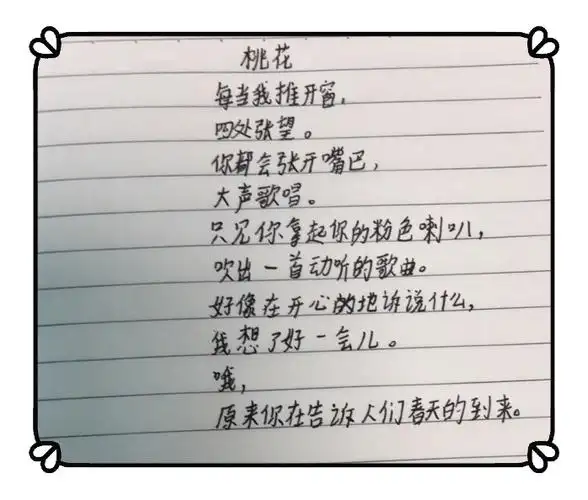 桃花
每当我推开窗,
四处张望。
你都会张开嘴巴,
大声歌唱。
只见你拿起你的粉色喇叭,
吹出一首动听的歌曲。
好像在开心的地诉说什么,
我想了好一会儿。
哦,
原来你在告诉人们春天的到来。